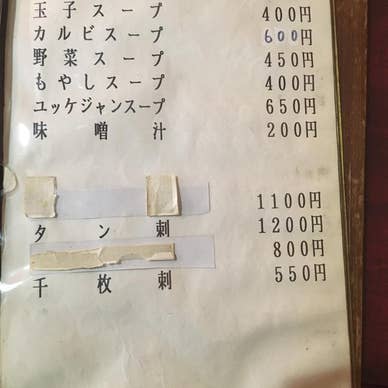 玉子スープ 400円
カルビスープ 600円
野菜スープ 450円
もやしスープ 400円
ユッケジャンスープ 650円
味噌汁 200円
1100円
タン刺 1200円
800円
千枚刺 550円